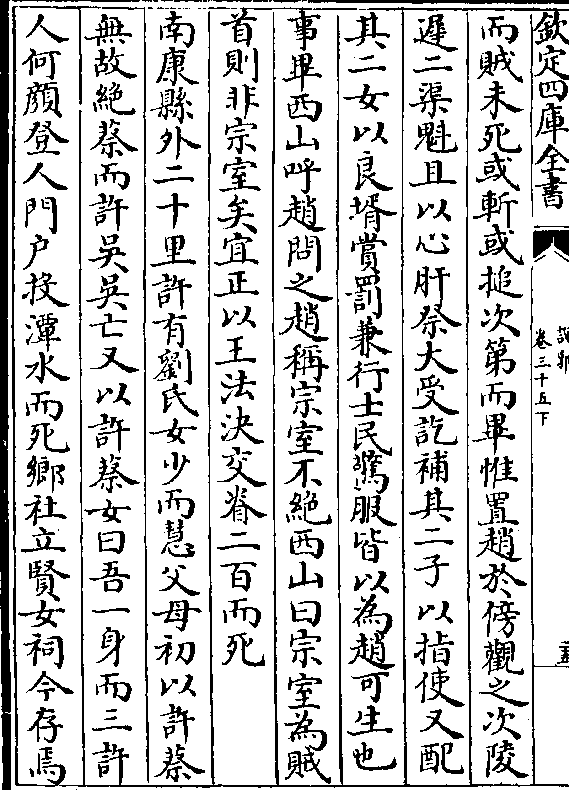 欽定四庫全書
說郛
卷三十五下
而賊未死或斬或搥次第而畢惟置趙於傍觀之次陵
遲二渠魁且以心肝祭大受訖補其二子以指使又配
其二女以良壻賞罰兼行士民驚服皆以為趙可生也
事畢西山呼趙問之趙稱宗室不絕西山曰宗室為賊
首則非宗室矣宜正以王法決交脊二百而死
南康縣外二十里許有劉氏女少而慧父母初以許蔡
無故絶蔡而許吳吳亡又以許蔡女曰吾一身而三許
人何顔登人門户投潭水而死鄉社立賢女祠今存焉